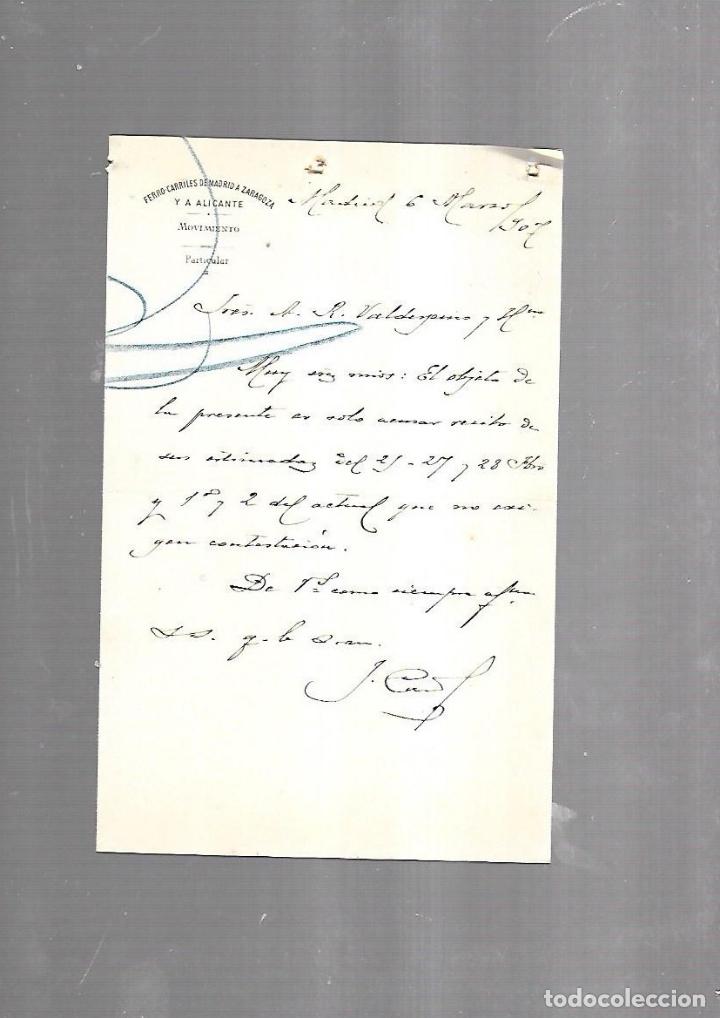 FERRO-CARRILES DE MADRID A ZARAGOZA
Y A ALICANTE
MOVIMIENTO
Particular
Madrid 6 Marzo
902
Sres. A. R. Valdespino y Hno
Muy sres mios: El objeto de
la presente es solo acusar recibo de
sus estimadas del 25 - 27 y 28 Fbro
y 1º y 2 del actual que no exi-
gen contestación.
De Vs. como siempre afmo
s s. q. b s. m.
J.
todocoleccion
todocoleccion.net